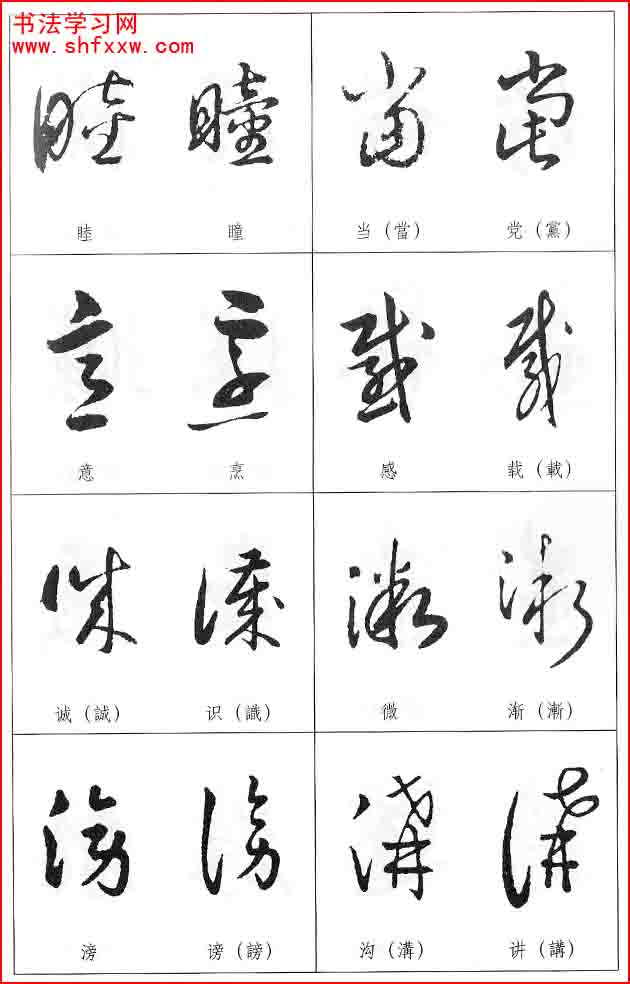 书法学习网
www.shfxxw.com
睦 瞳 当（當） 党（黨）
意 烹 感 载（載）
诚（誠） 识（識） 微 渐（漸）
滂 谤（謗） 沟（溝） 讲（講）